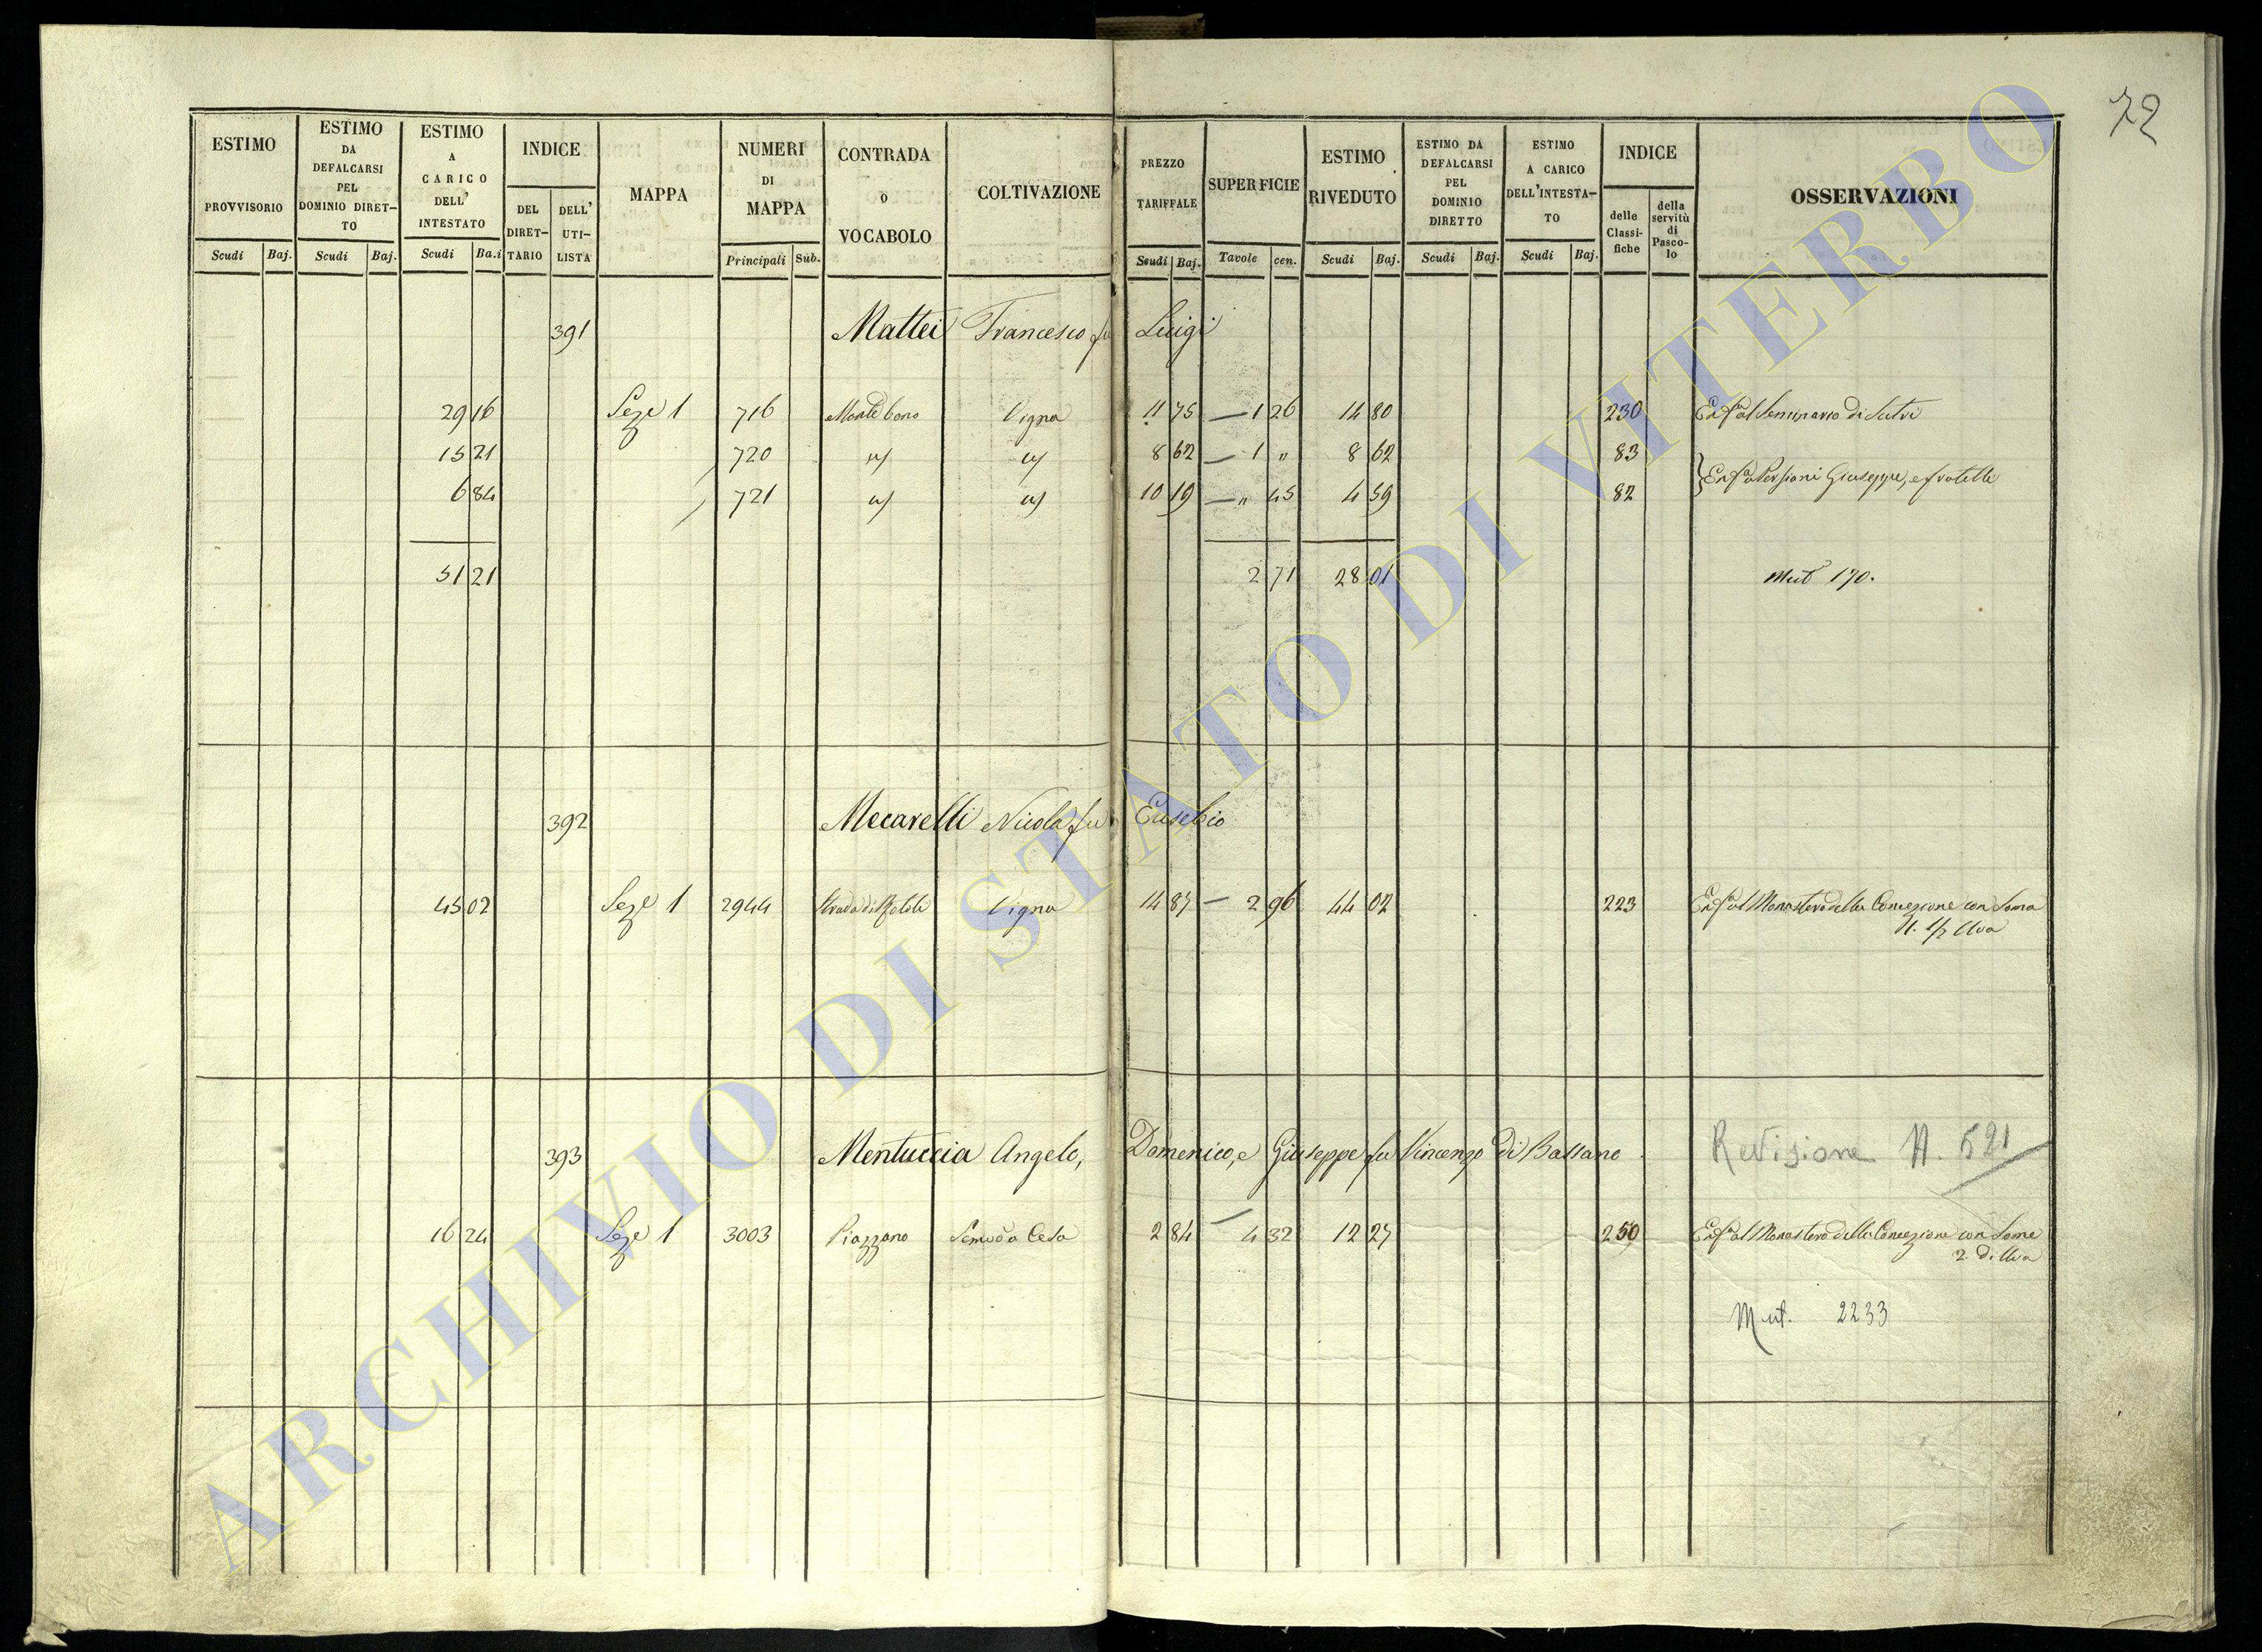 72
ESTIMO PROVVISORIO Scudi Baj.
ESTIMO DA DEFALCARSI PEL DOMINIO DIRET-TO Scudi Baj.
ESTIMO A CARICO DELL' INTESTATO Scudi Ba.i
INDICE DEL DIRET-TARIO DELL' UTI-LISTA
MAPPA
NUMERI DI MAPPA Principali Sub.
CONTRADA O VOCABOLO
COLTIVAZIONE
PREZZO TARIFFALE Scudi Baj.
SUPERFICIE Tavole cen.
ESTIMO RIVEDUTO Scudi Baj.
ESTIMO DA DEFALCARSI PEL DOMINIO DIRETTO Scudi Baj.
ESTIMO A CARICO DELL'INTESTA-TO Scudi Baj.
INDICE delle Classi-fiche della servitù di Pasco-lo
OSSERVAZIONI
391 Mattei Francesco fu Luigi
29 16 Seze 1 716 Monte bono Vigna 11 75 — 1 26 14 80 230 Enfa al Seminario di Sutri
15 21 720 8 62 — 1 " 8 62 83
6 84 721 10 19 — " 45 4 59 82 } Enfa a Persiani Giuseppe, e fratelli
51 21 2 71 28 01 Mut 170.
392 Mecarelli Nicola fu Eusebio
45 02 Seze 1 2944 Strada di Vigna 14 87 — 2 96 44 02 223 Enfa al Monastero della Concezione con Soma
N. 1/2 Uva
393 Mentuccia Angelo, Domenico, e Giuseppe fu Vincenzo di Bassano Revisione N. 521
16 24 Seze 1 3003 Piazzano Semva Cesa 2 84 — 4 32 12 27 250 Enfa al Monastero della Concezione con Some
2 di Uva
Mut. 2233
ARCHIVIO DI STATO DI VITERBO